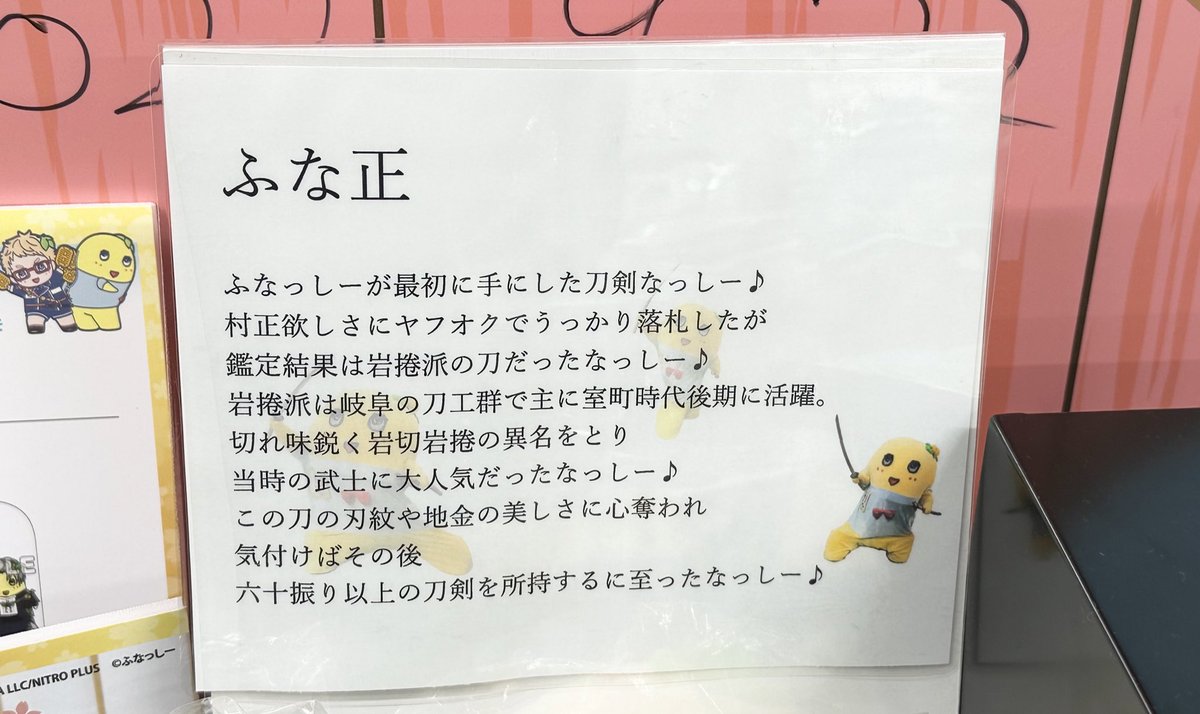 ふな正
ふなっしーが最初に手にした刀剣なっしー♪
村正欲しさにヤフオクでうっかり落札したが
鑑定結果は岩捲派の刀だったなっしー♪
岩捲派は岐阜の刀工群で主に室町時代後期に活躍。
切れ味鋭く岩切岩捲の異名をとり
当時の武士に大人気だったなっしー♪
この刀の刃紋や地金の美しさに心奪われ
気付けばその後
六十振り以上の刀剣を所持するに至ったなっしー♪
A LLC/NITRO PLUS ©ふなっしー